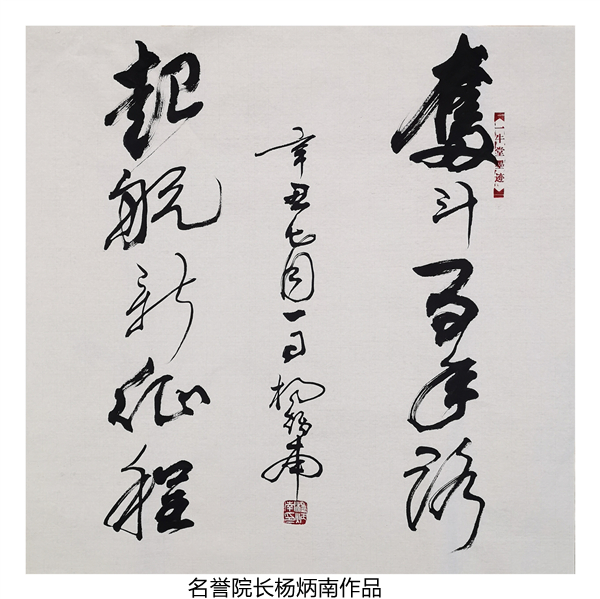 奮斗百年路
一牛堂墨迹
起航新征程
辛丑七月一日杨炳南
名誉院长杨炳南作品